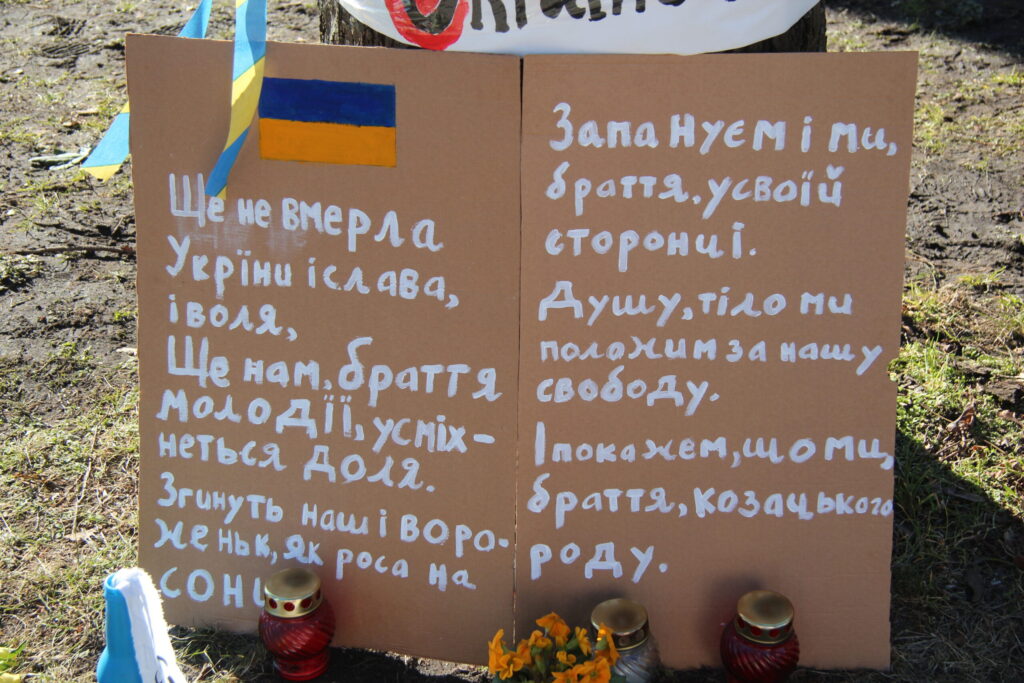 Ukraine
Ще не вмерла
Укріни і слава,
і воля,
Ще нам, браття
молодії, усміх-
неться доля.
Згинуть наші воро-
женьк, як роса на
Запануєм і ми,
браття, у своїй
сторонці.
Душу, тіло ми
положим за нашу
свободу.
І покажем, що ми,
браття, козацького
роду.